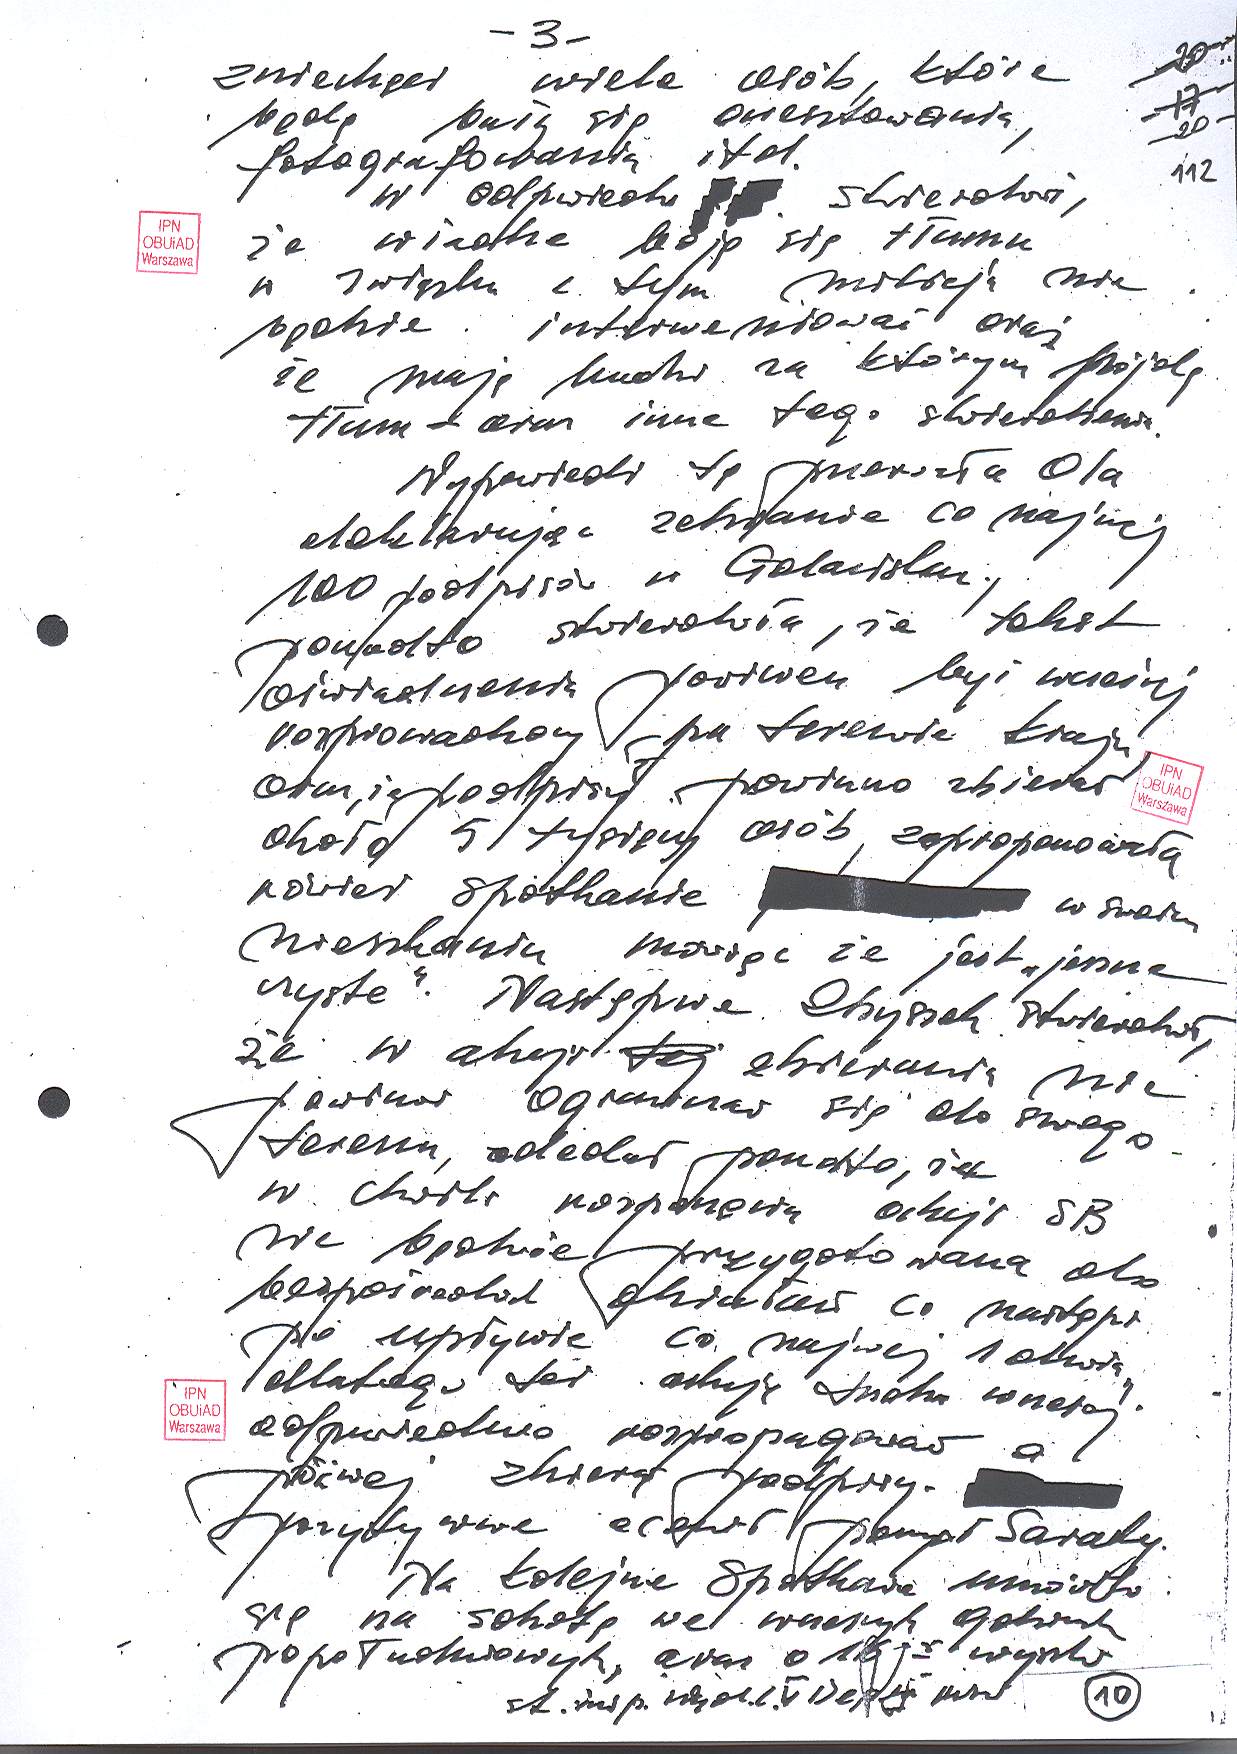 - 3 -
zniechęci wiele osób, które
będą bały się aresztowania,
fotografowania itd.
W odpowiedzi stwierdził,
że władze boją się tłumu
w związku z tym milicja nie
będzie interweniować oraz
że mają ludzi za którym pójdą
tłum - oraz inne tego stwierdzenia.
Wypowiedź tę Ola
deklarując zebranie co najmniej
100 podpisów w Gdańsku,
ponadto stwierdziła, że tekst
oświadczenia powinien być wcześniej
rozprowadzony na terenie kraju
oraz, że podpisy powinno zbierać
około 5 tysięcy osób, zaproponowała
również spotkanie w swoim
mieszkaniu mówiąc że jest "jeszcze
czyste". Następnie Zbyszek stwierdził,
że w akcji zbierania nie
powinni ograniczać się do swego
terenu, dodał ponadto, że
w chwili rozpoczęcia akcji SB
nie będzie przygotowana do
bezpośrednich działań co nastąpi
po upływie co najmniej 1 dnia,
dlatego też akcję trzeba wcześniej
odpowiednio rozpropagować a
później zbierać podpisy.
pozytywnie ocenił pomysł Saraty.
Na kolejne spotkanie umówili
się na sobotę we wczesnych godzinach
popołudniowych, oraz o 16
st. insp.
20
17
20
112
IPN
OBUiAD
Warszawa
IPN
OBUiAD
Warszawa
IPN
OBUiAD
Warszawa
10